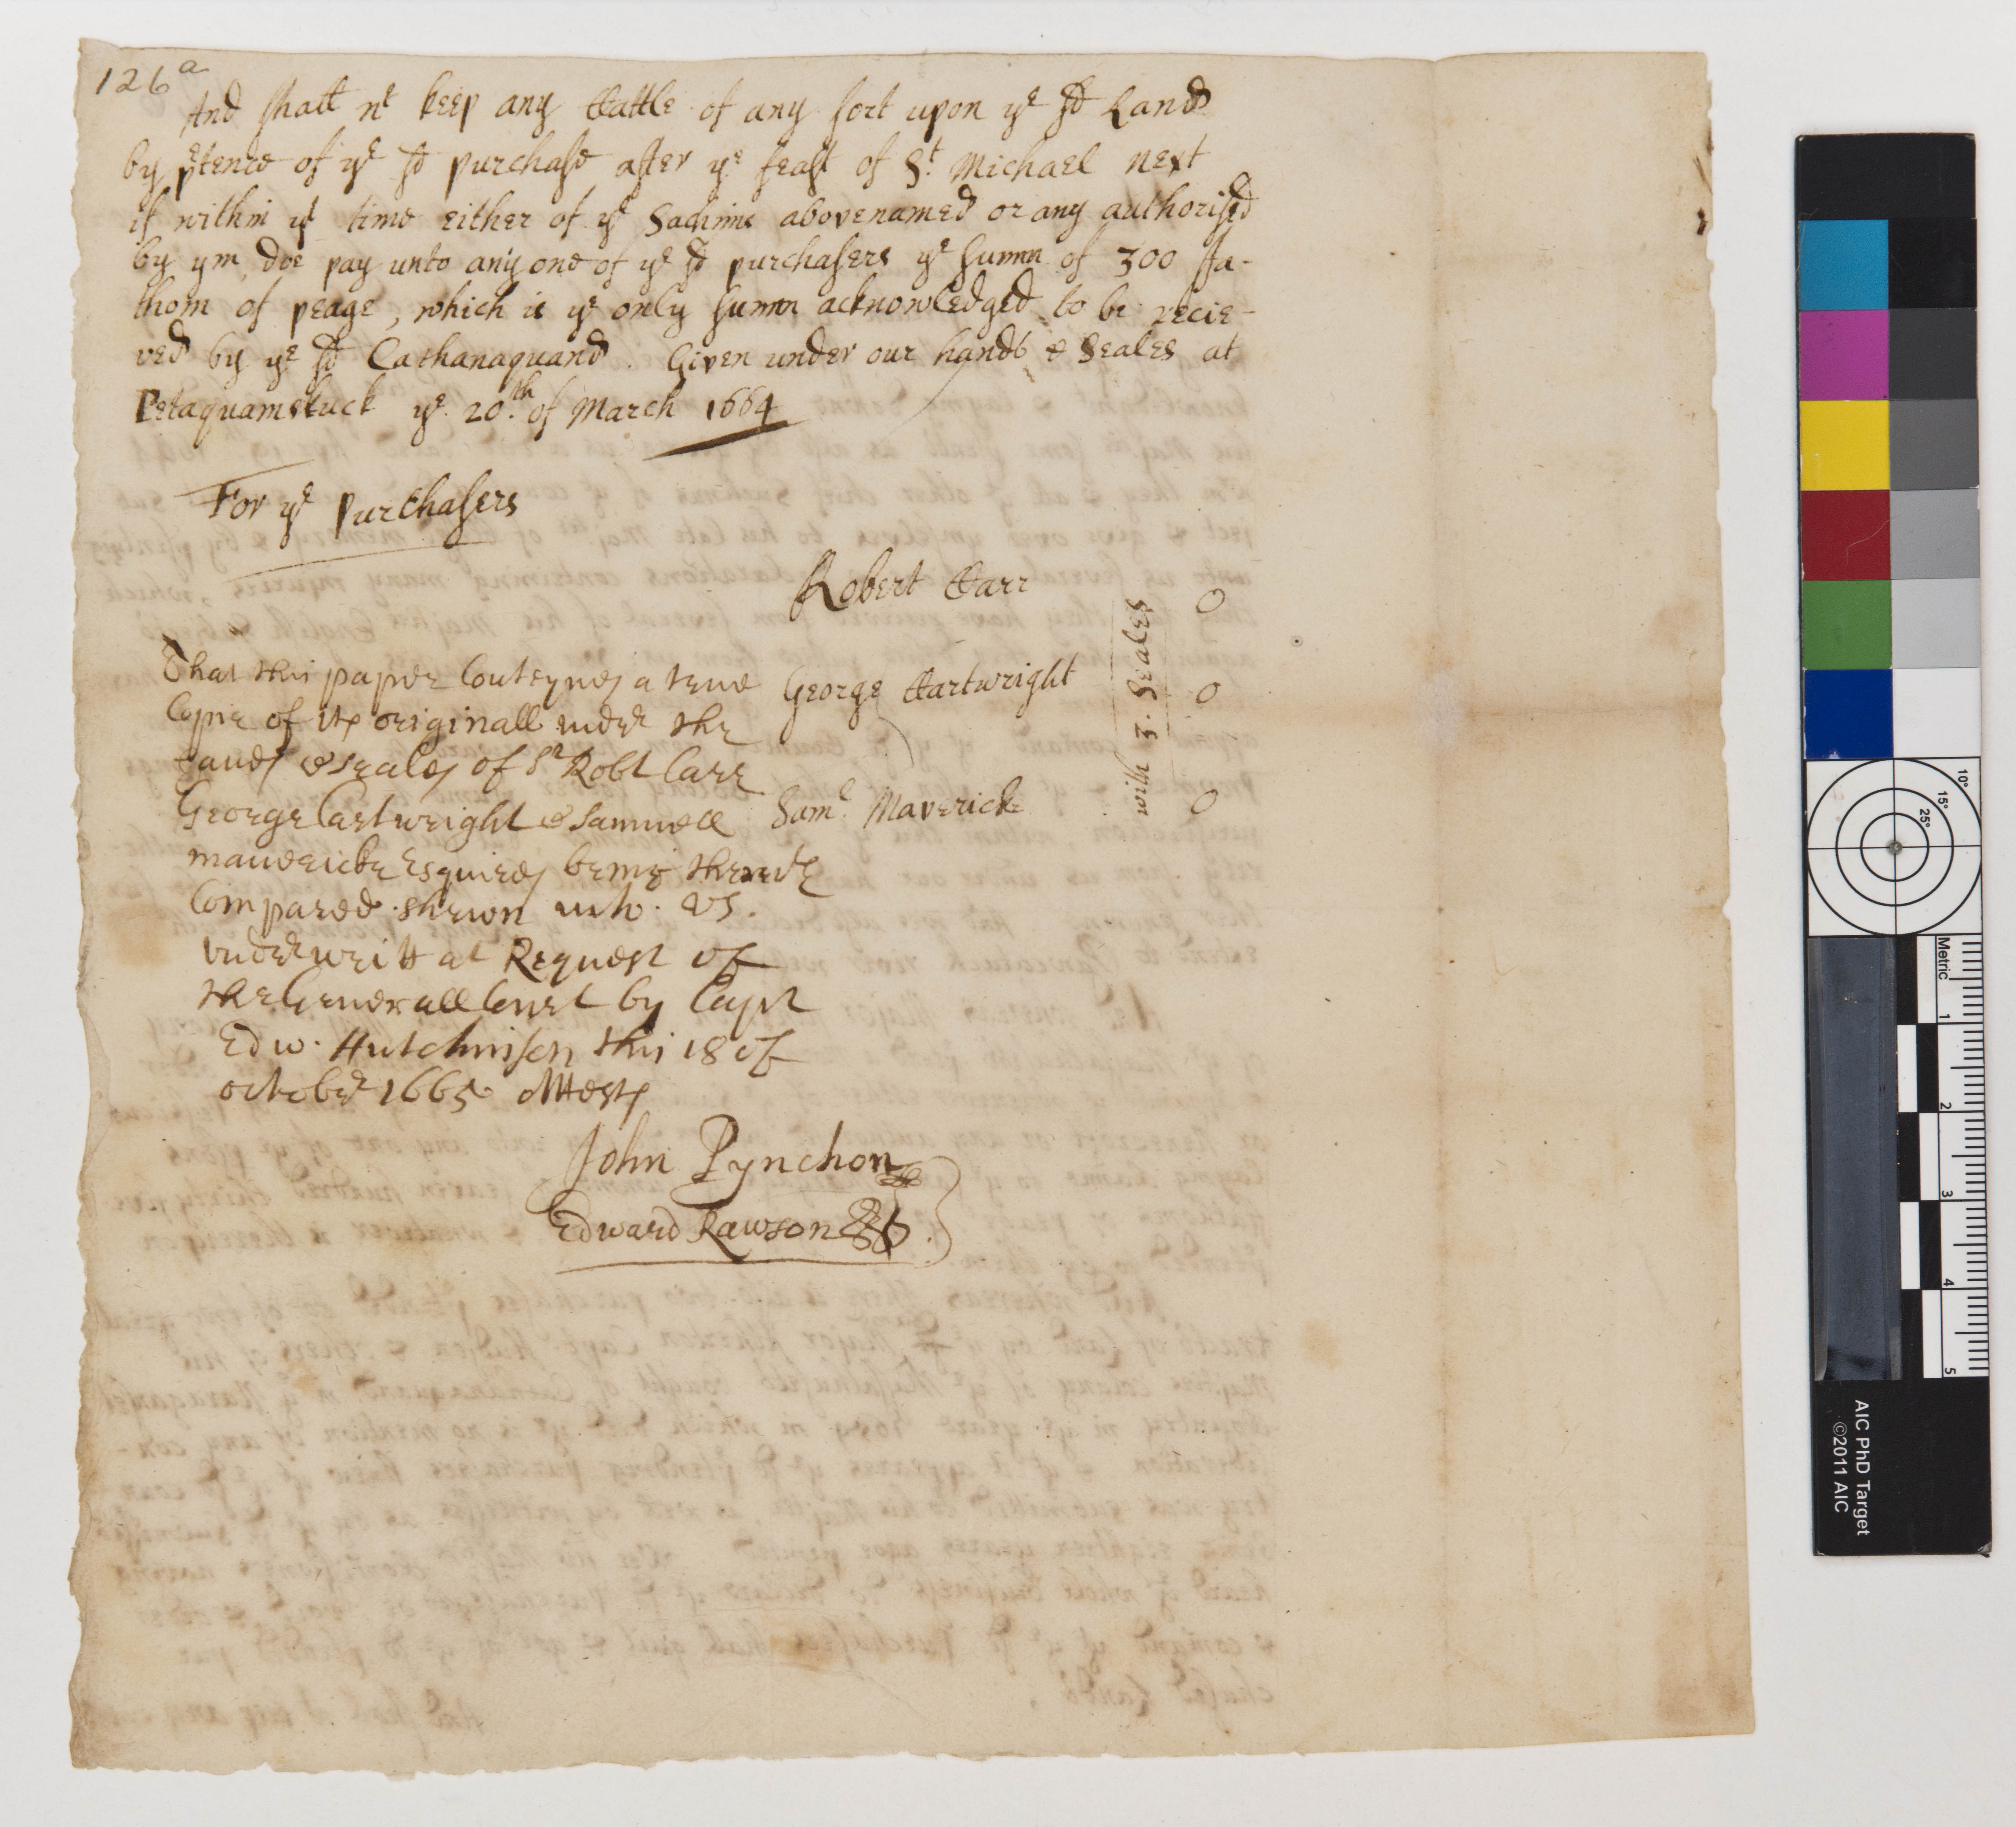 126a
And shall nt keep any Cattle of any sort upon ye sd Land
by ptence of ye sd purchase after ye feast of St. Michael next
if within yt time either of ye Sachims abovenamed or any authorised
by ym, doe pay unto any one of ye sd purchasers ye summ of 300 ffa-
thom of peage, which is ye only summ acknowledged to be recie-
ved by ye sd Cathanaquand. Given under our hands & Seales at
Petaquamscuck ye. 20.th of March 1664
For ye Purchasers
Robert Carr
George Cartwright
Sam.l Maverick
with 3. Seales
That this paper Conteynes a true
Copie of its originall undr the
hands & seales of Sr Robt Carr
George Cartwright & Samuell
mavericke Esquires being
Compared wth. vs.
vndrwritt at Request of
the Generall Court by Capt
Edw. Hutchinson this 18 of
octobr 1665 Attests
John Pynchon
Edward Rawson
Metric
1
2
3
4
5
10°
15°
25°
AIC PhD Target
©2011 AIC